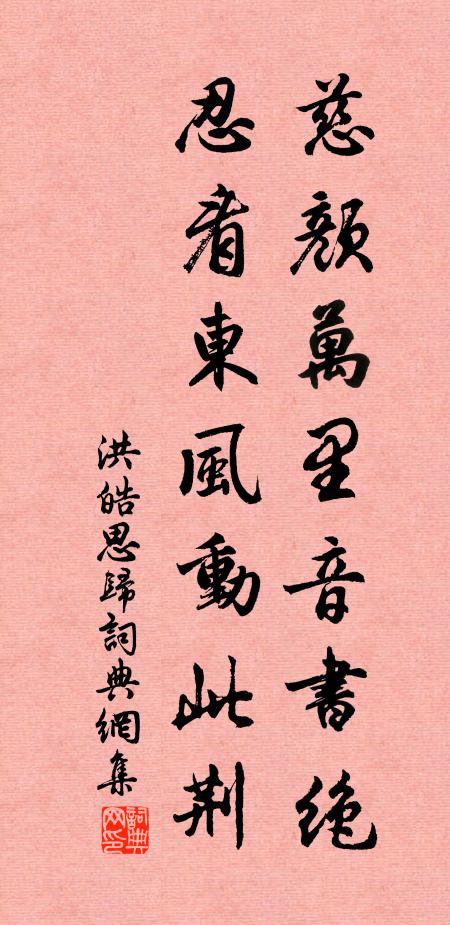 慈顏萬里音書絶
忍看東風動此荆
洪皓思歸詞典網集
詞典網印